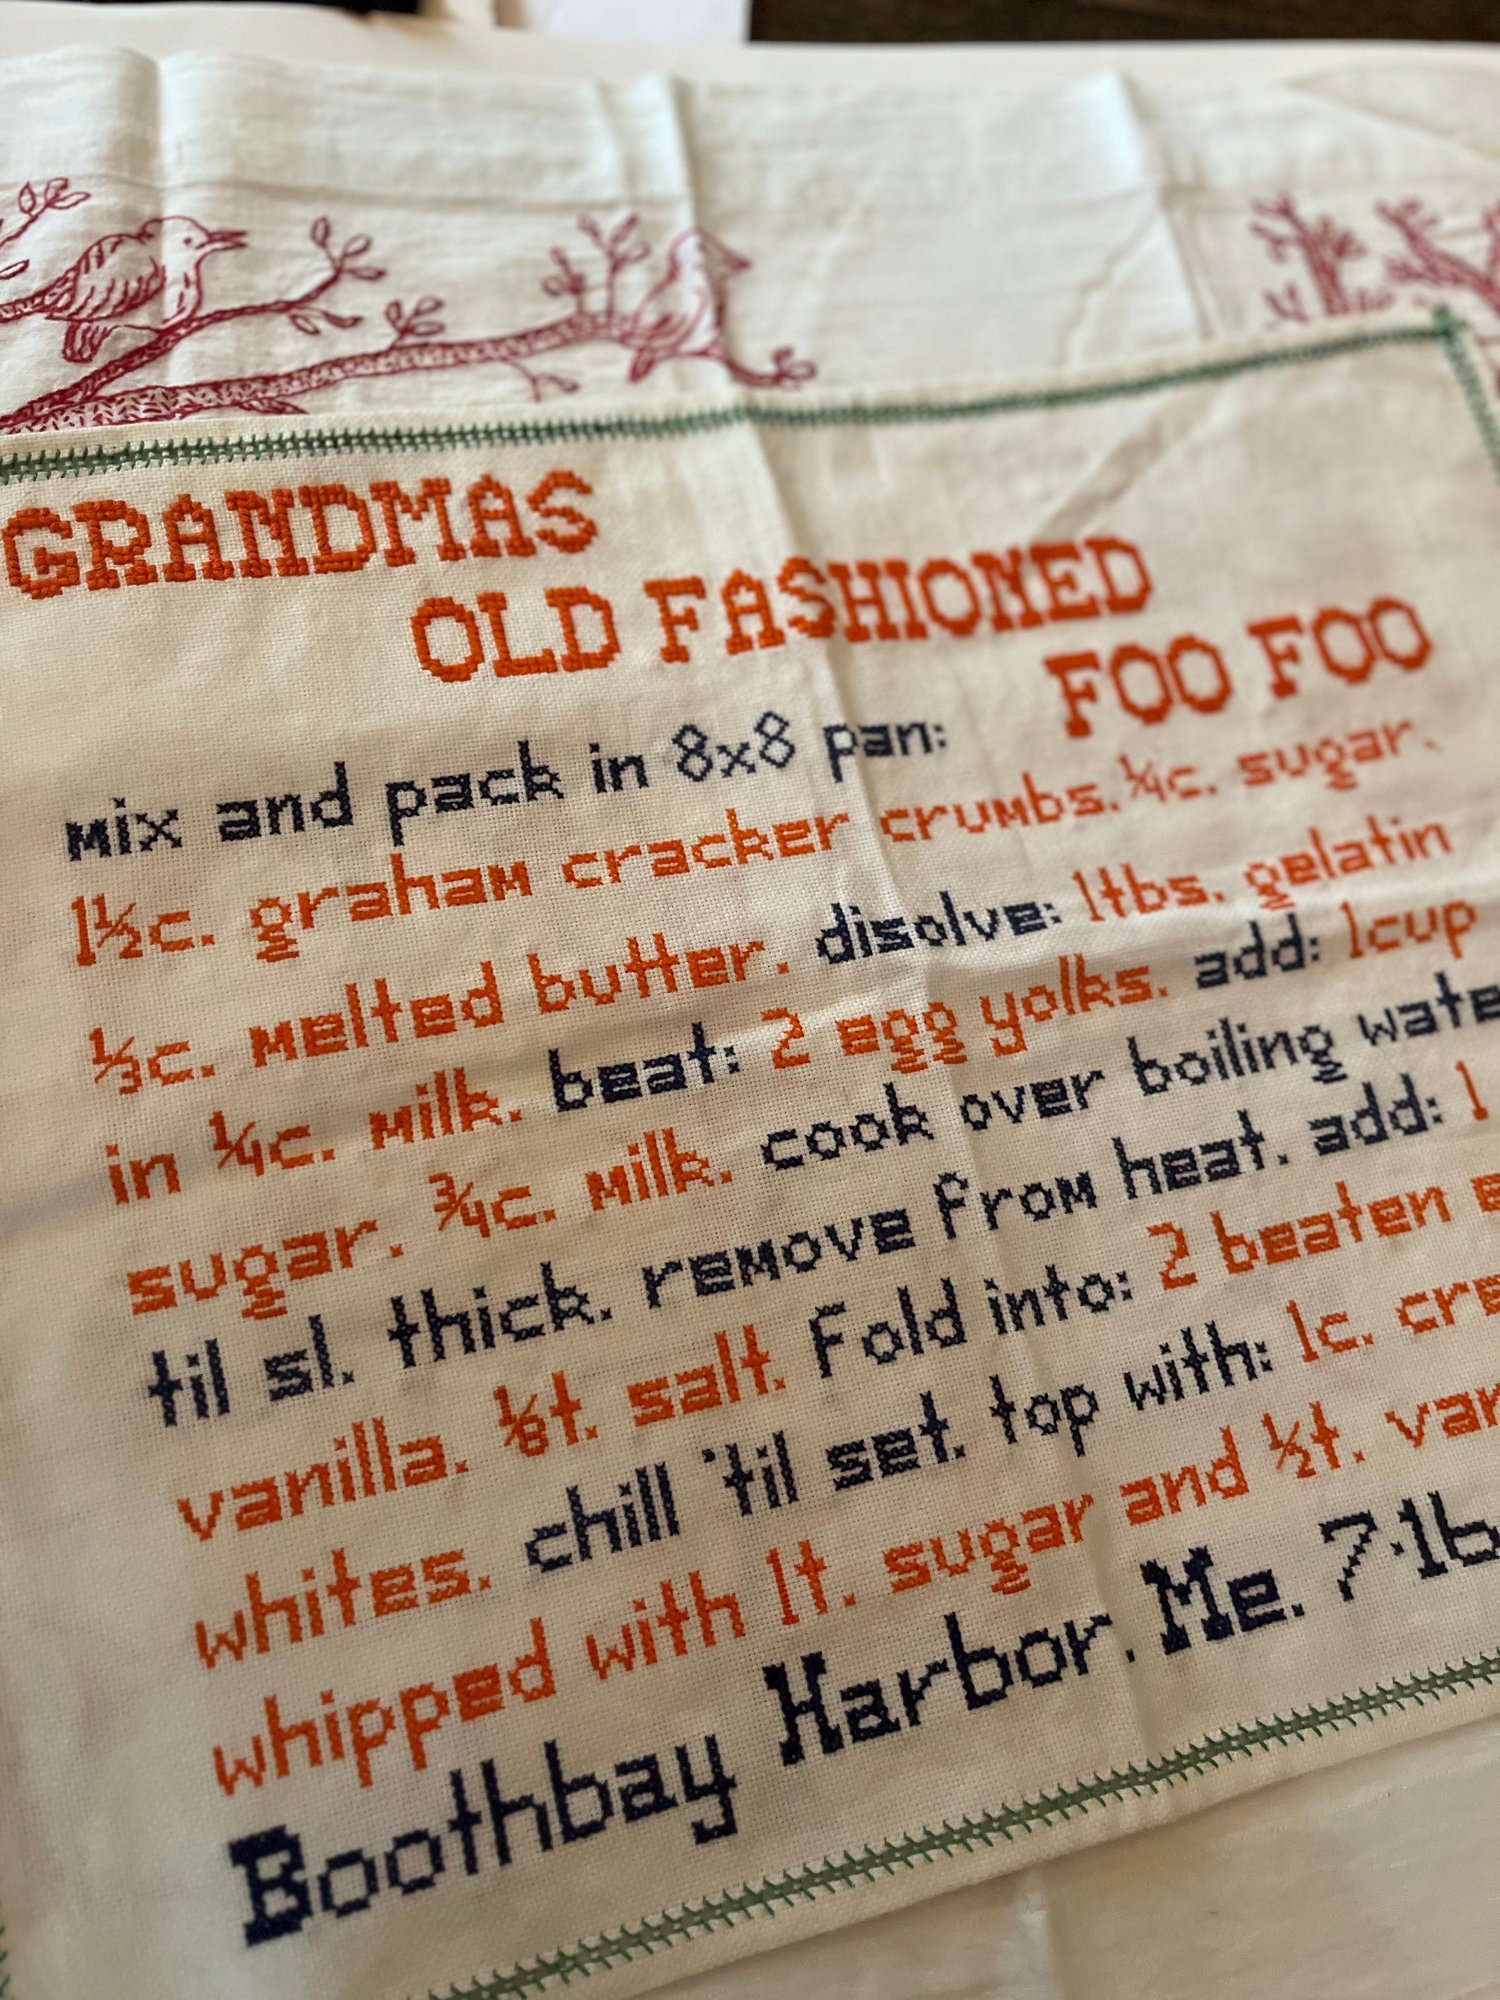 GRANDMAS
OLD FASHIONED
FOO FOO
mix and pack in 8x8 pan:
1½c. graham cracker crumbs. ¼c. sugar.
⅓c. melted butter. disolve: 1tbs. gelatin
in ¼c. milk. beat: 2 egg yolks. add: 1cup
sugar. ¾c. milk. cook over boiling
til sl. thick. remove from heat. add: 1
vanilla. ⅛t. salt. Fold into: 2 beaten
whites. chill 'til set. top with: 1c.
whipped with 1t. sugar and ½t.
Boothbay Harbor. Me.